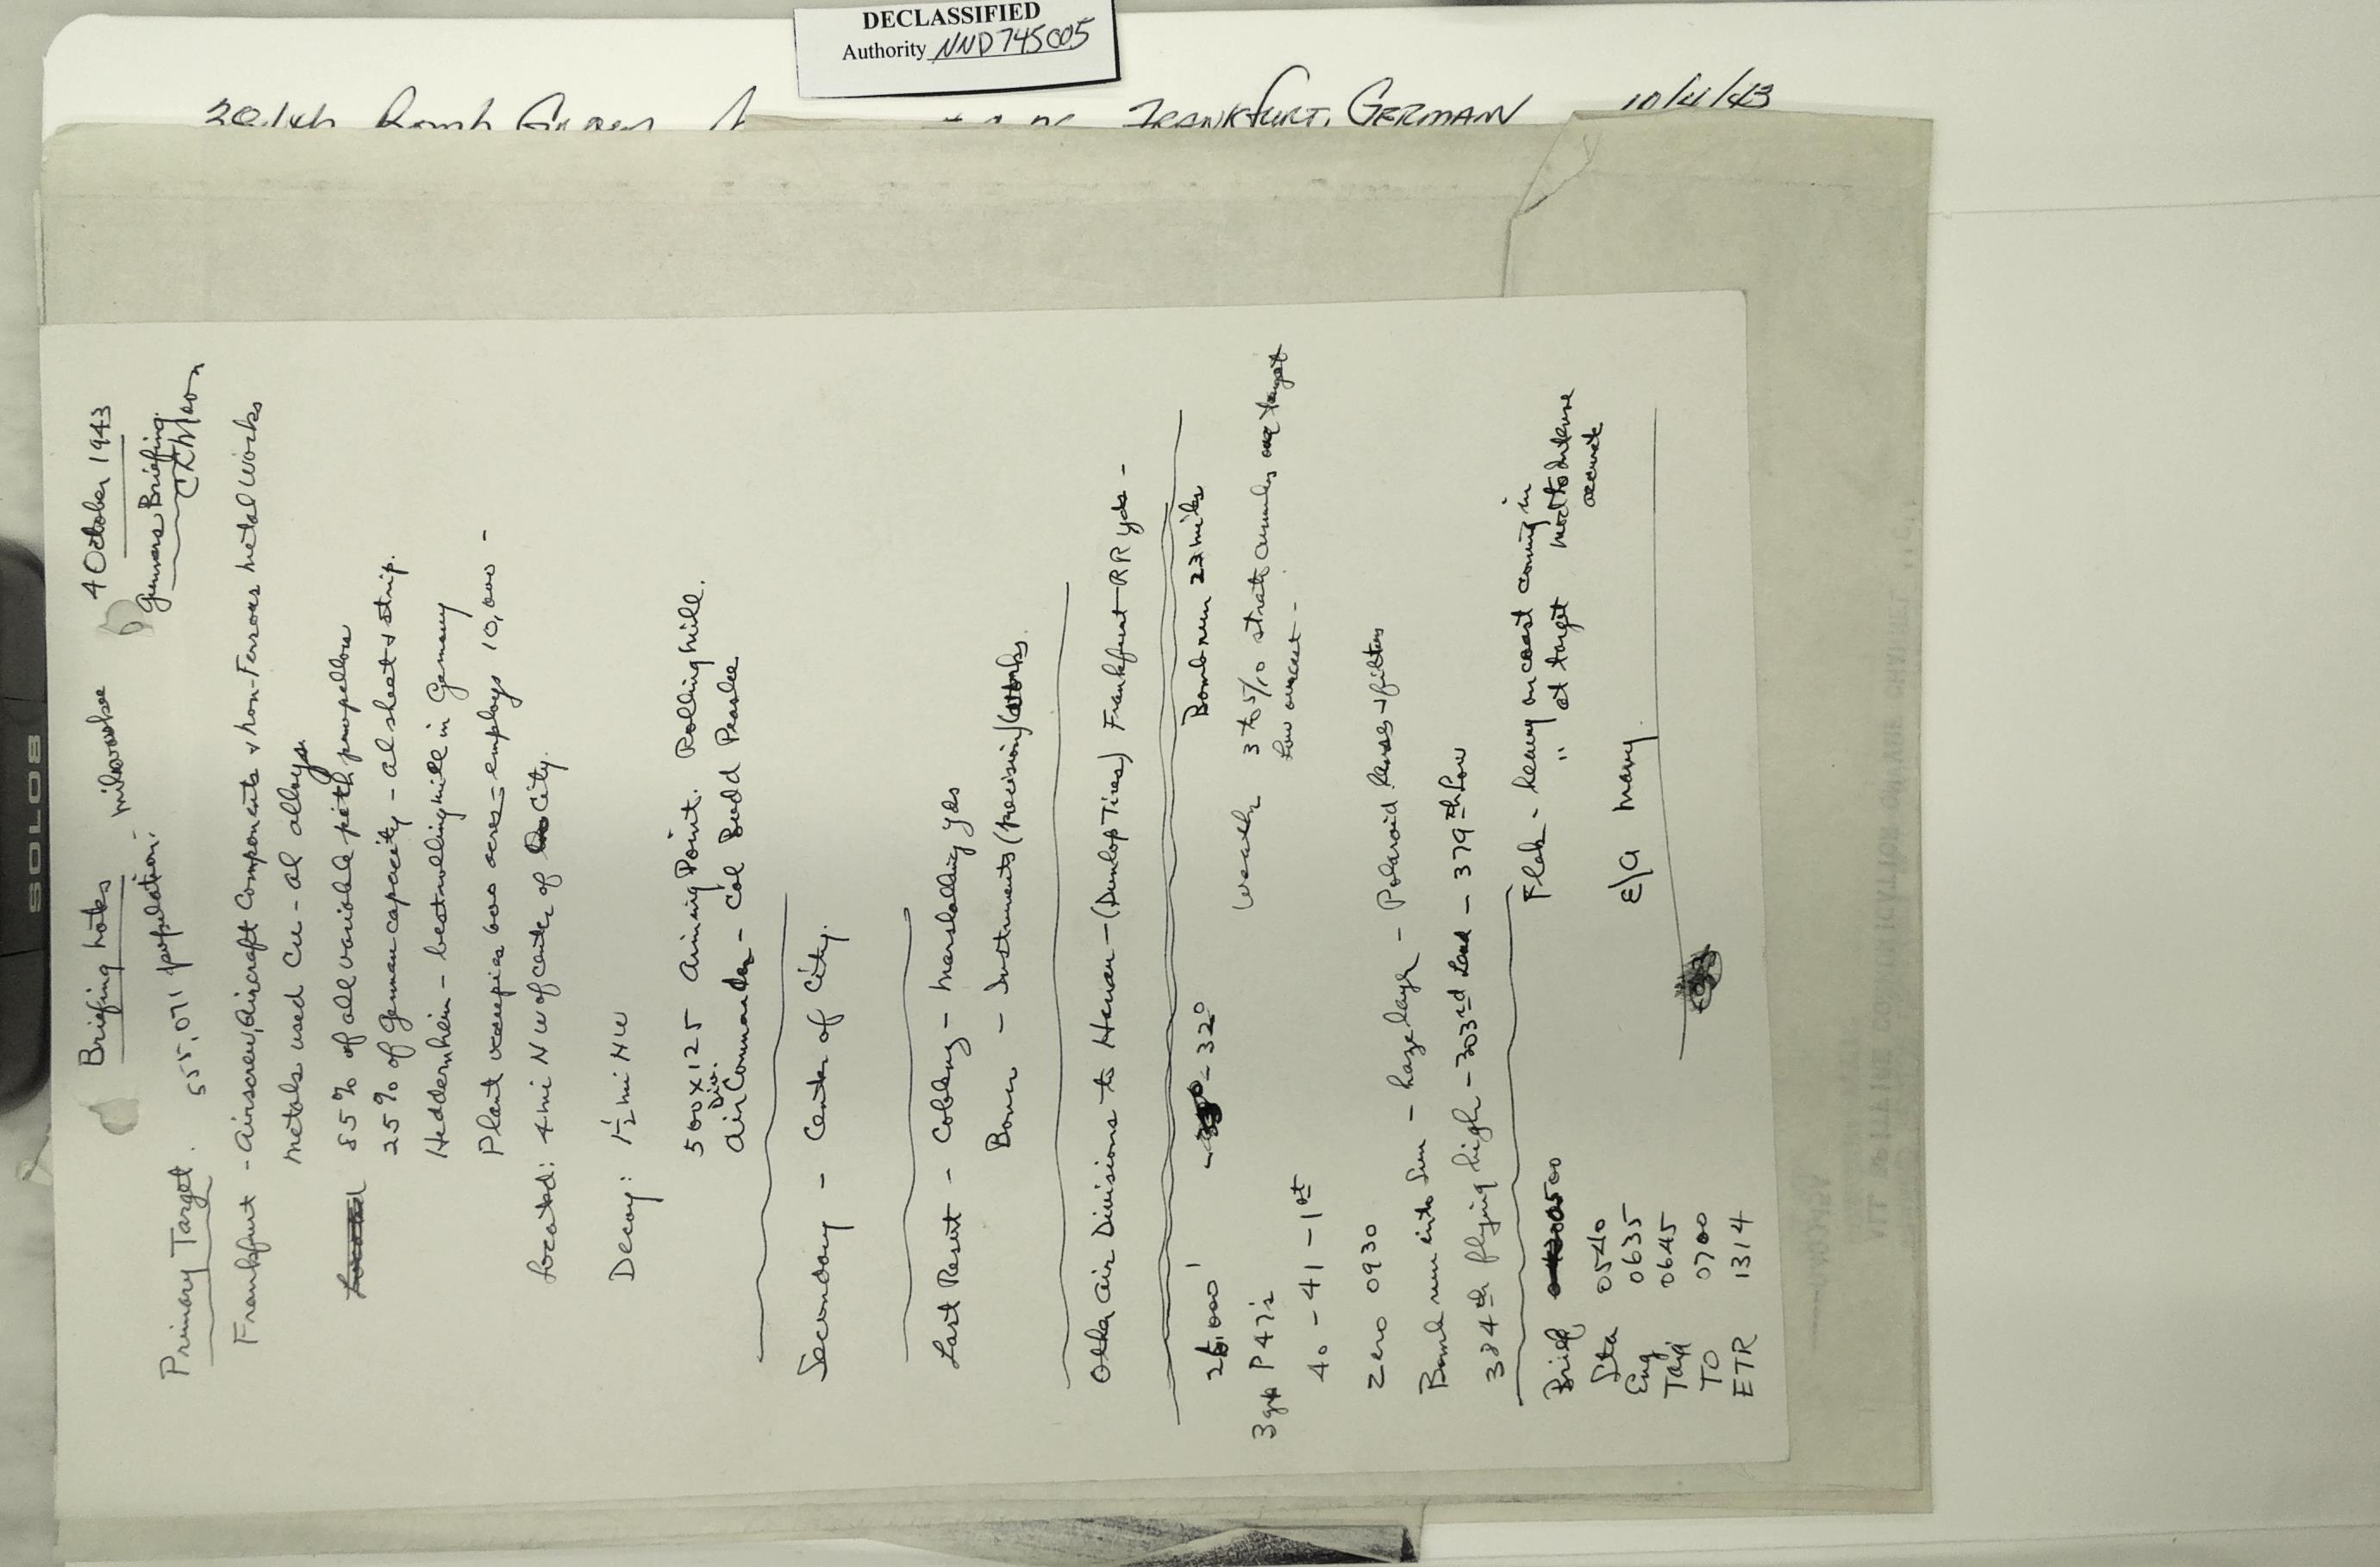 DECLASSIFIED
Authority NND 745005
384th Bomb Group FRANKFURT, GERMAN 10/4/43
SOLO8
Briefing notes 4 October 1943
Gunners Briefing
Primary Target. 555,071 population - milwaukee
Frankfurt - Airscrew, Aircraft Components & Non-Ferrous Metal Works
metals used Cu - al alloys.
85% of all variable pitch propellors
25% of German capacity - al sheet & strip.
Heddernheim - best rolling mill in Germany
Plant occupies 600 acres = employs 10,000 -
Located: 4 mi NW of center of City.
Decoy: 1½ mi NW
500 x 125 Aiming Point. Rolling mill.
Div.
Air Commander - Col Budd Peaslee
Secondary - Center of City.
Last Resort - Coblenz - Marshalling yds
Bonn - Instruments (Precision) Works.
Other Air Divisions to Hanau - (Dunlop Tires) Frankfurt RR yds -
26,000' - 32° Bomb run 22 miles
3 gps P47's Weather 3 to 5/10 strato cumulus over target
low overcast -
40 - 41 - 1st
Zero 0930
Bomb run into Sun - haze layer - Polaroid lenses & filters
384th flying high - 303rd Lead - 379th Low
Flak - heavy on coast coming in
" at target mod to intense
accurate
Brief 0500
Sta 0540
Eng 0635
Taxi 0645
TO 0700
ETR 1314
E/A many